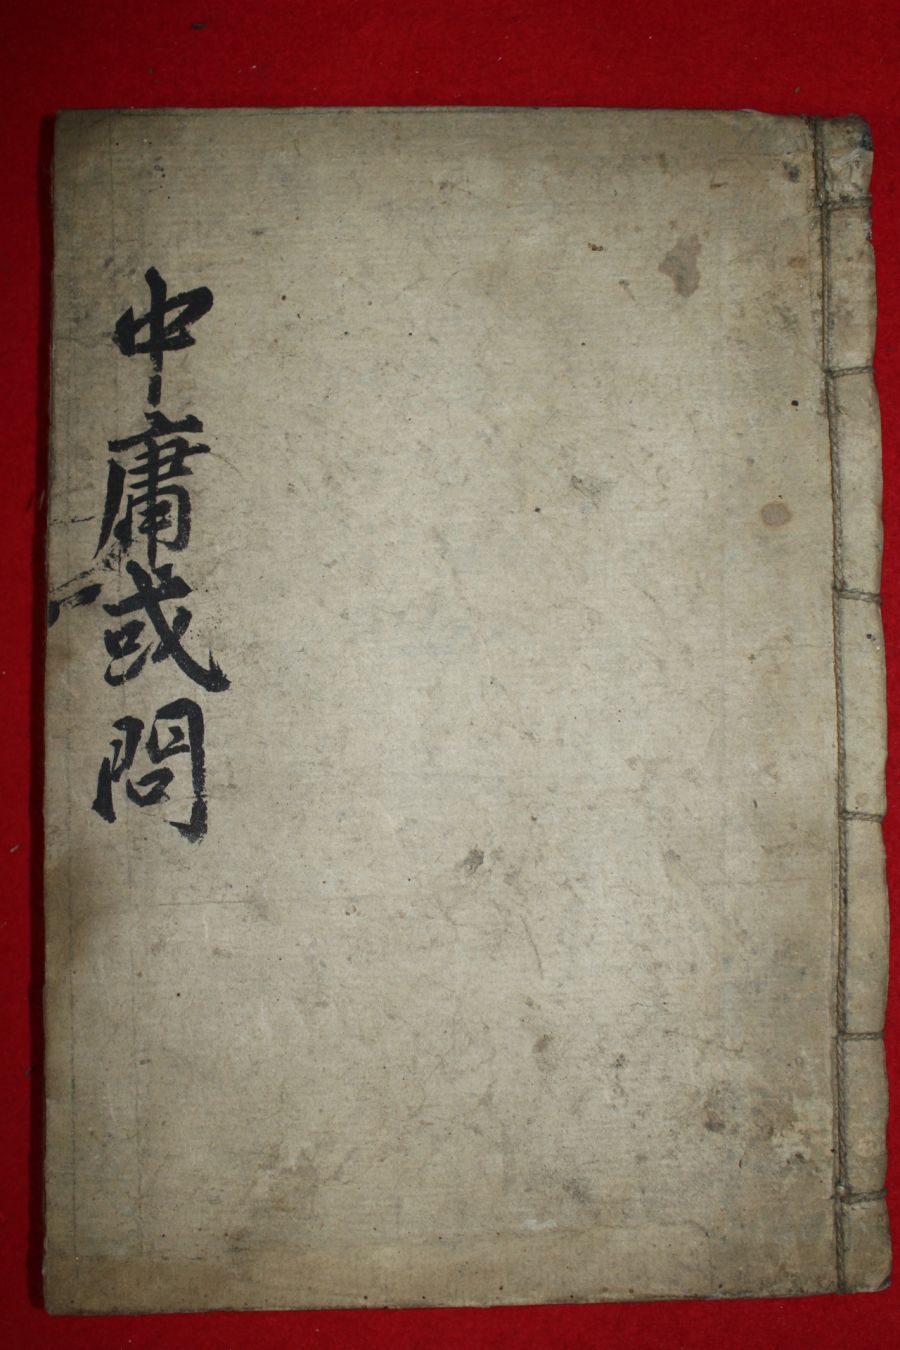 中庸或問